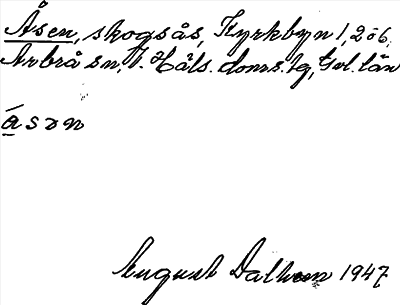 Åsen, skogsås, Kyrkbyn 1, 2 o 6,
Arbrå sn, V. Häls. doms. tg, Gvl. län
åsɔn
August Dalken 1947